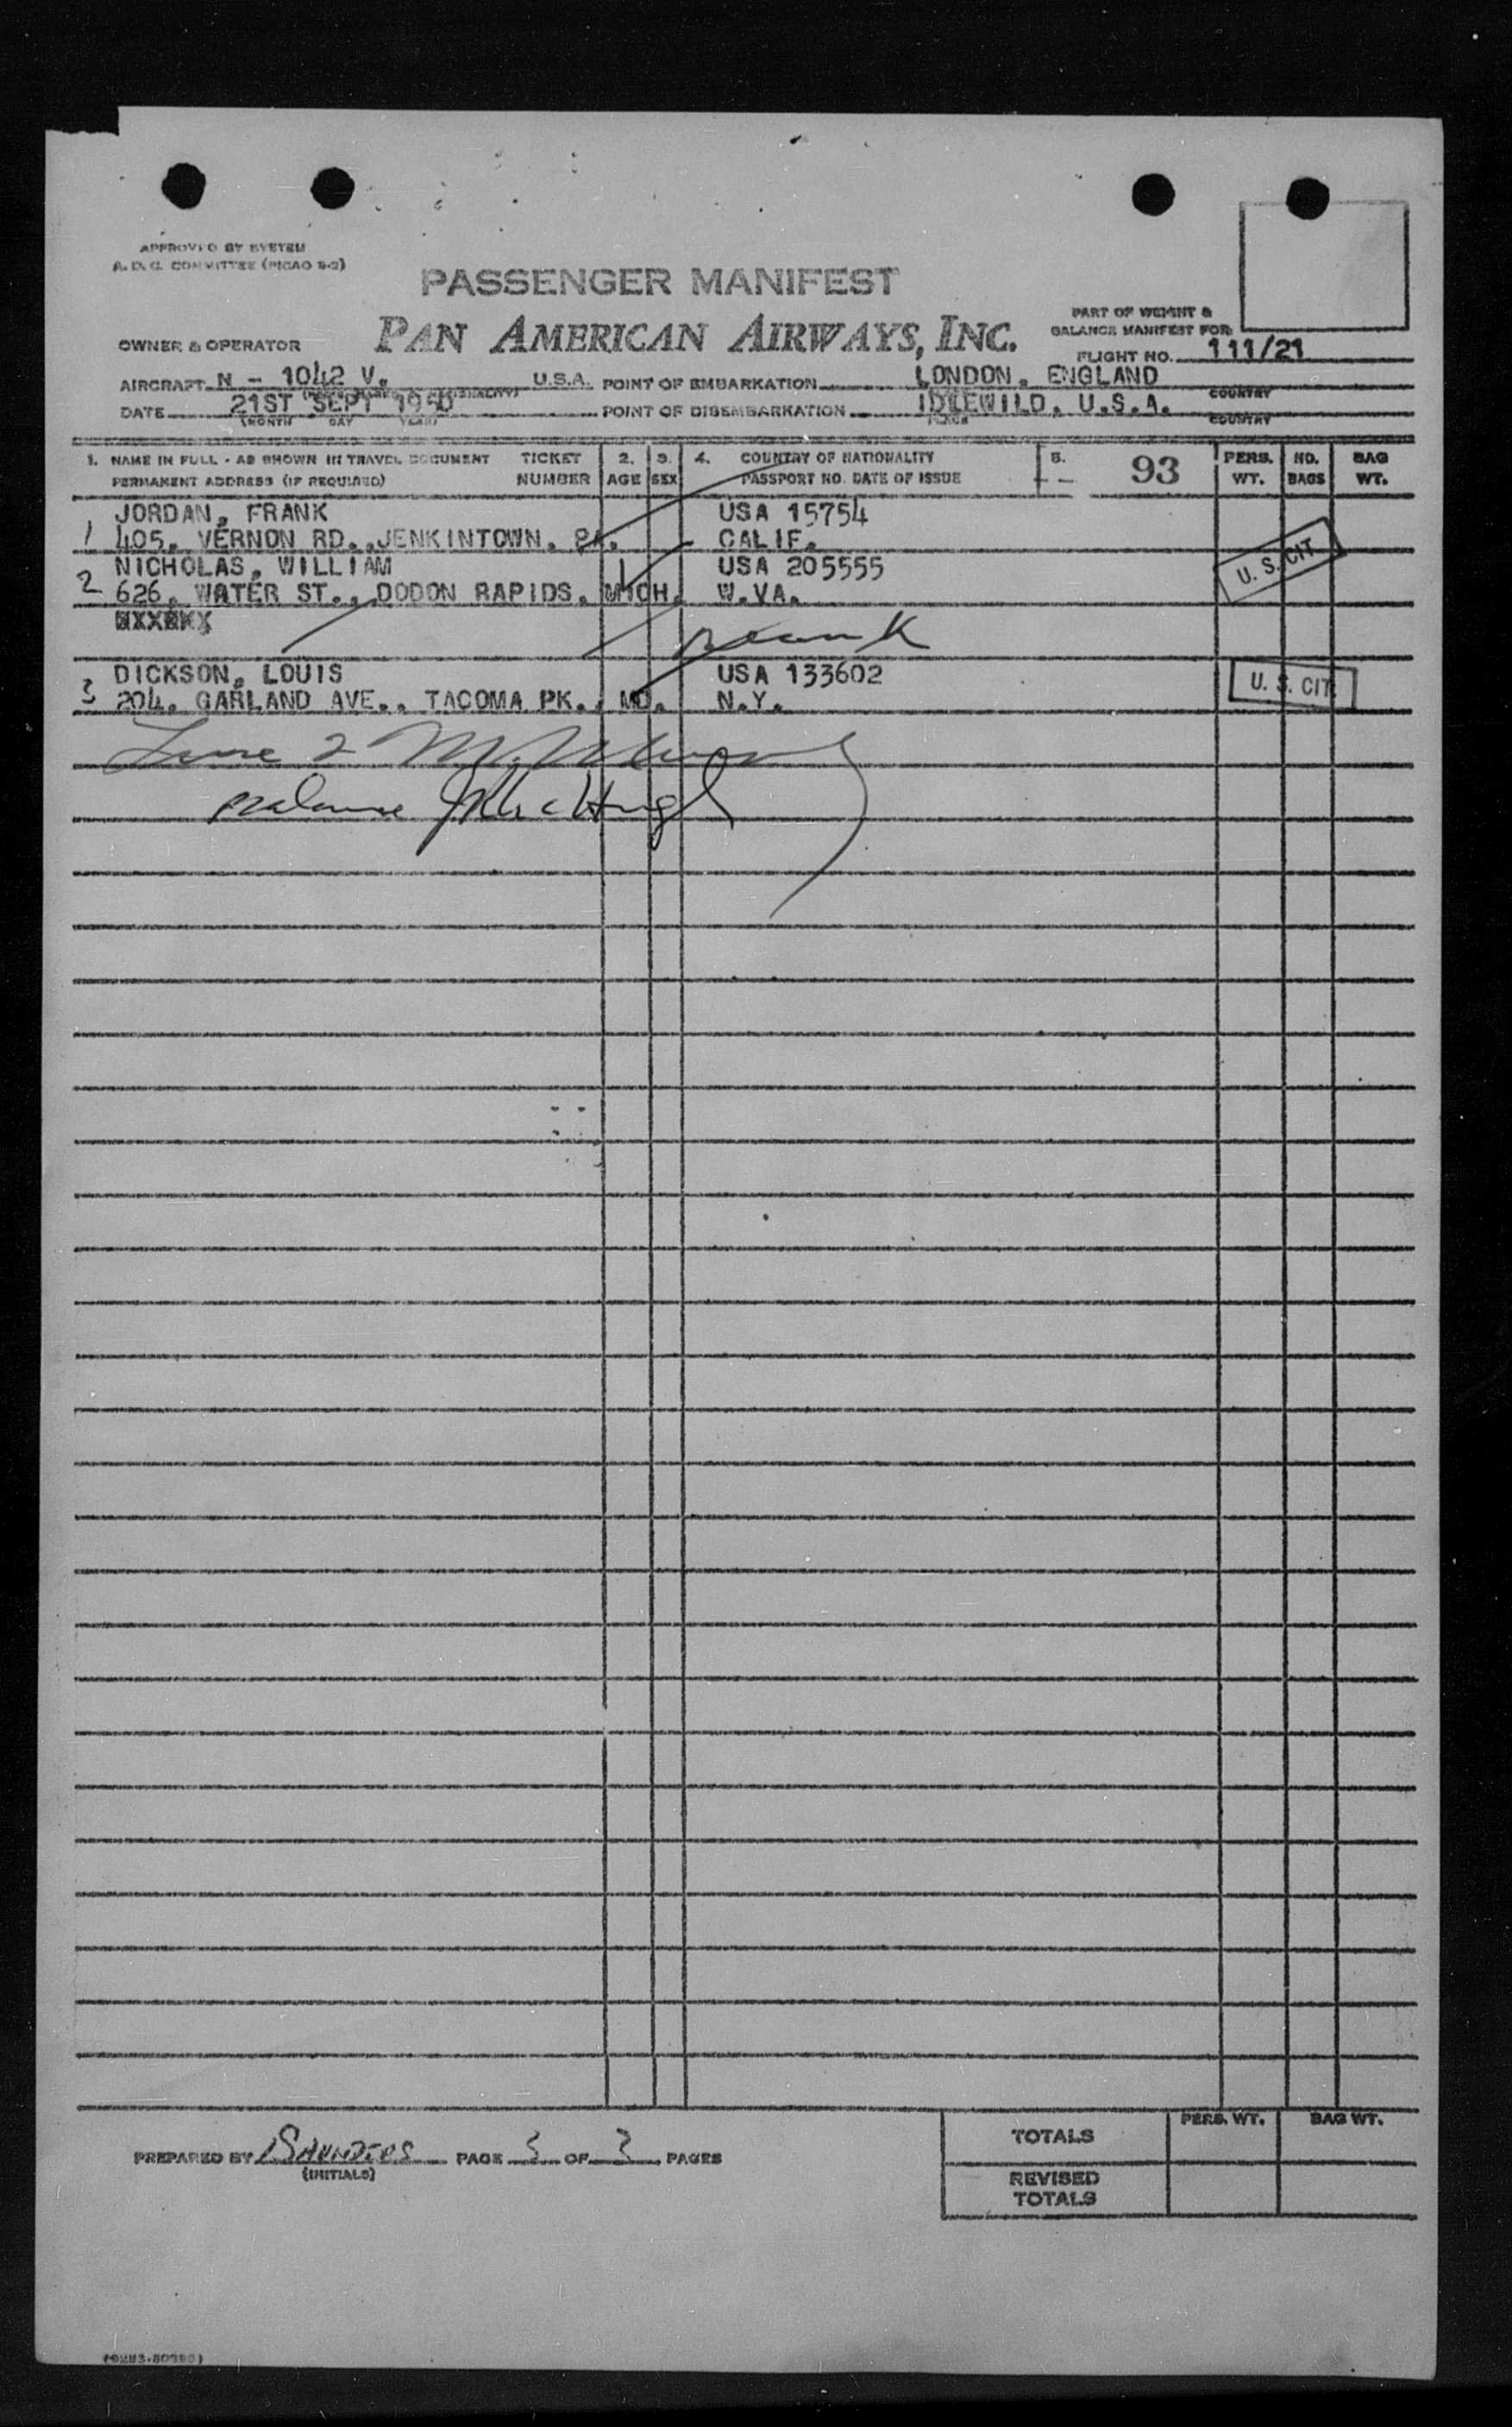 APPROVED BY SYSTEM
A. D. C. COMMITTEE (PICAO 9-2)
PASSENGER MANIFEST
PAN AMERICAN AIRWAYS, INC.
PART OF WEIGHT &
BALANCE MANIFEST FOR:
OWNER & OPERATOR
FLIGHT NO. 111/21
AIRCRAFT N - 1042 V. U.S.A. POINT OF EMBARKATION LONDON, ENGLAND
COUNTRY
DATE 21ST SEPT 1950 POINT OF DISEMBARKATION IDLEWILD, U.S.A.
(MONTH DAY YEAR) PLACE COUNTRY
1. NAME IN FULL - AS SHOWN IN TRAVEL DOCUMENT TICKET 2. 3. 4. COUNTRY OF NATIONALITY 5. 93 PERS. NO. BAG
PERMANENT ADDRESS (IF REQUIRED) NUMBER AGE SEX PASSPORT NO. DATE OF ISSUE WT. BAGS WT.
JORDAN, FRANK USA 15754
1 405, VERNON RD., JENKINTOWN, PA. CALIF.
NICHOLAS, WILLIAM USA 205555 U. S. CIT
2 626, WATER ST., DODON RAPIDS, MICH. W.VA.
DICKSON, LOUIS USA 133602
3 204, GARLAND AVE., TACOMA PK., MD. N.Y. U. S. CIT
PREPARED BY SAUNDERS PAGE 3 OF 3 PAGES
(INITIALS)
PERS. WT. BAG WT.
TOTALS
REVISED
TOTALS